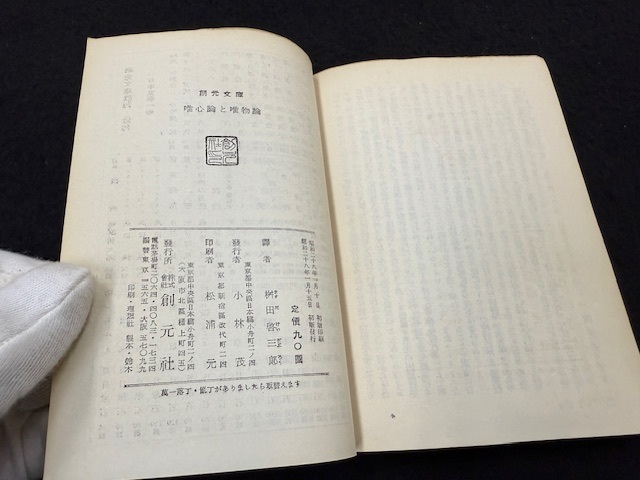 創元文庫
唯心論と唯物論
昭和二十八年一月十日 初版印刷
昭和二十八年一月十五日 初版発行
定價九〇圓
譯者 桝田啓三郎
東京都中央區日本橋小舟町二ノ四
發行者 小林茂
東京都新宿區改代町二四
印刷者 松浦元
東京都中央區日本橋小舟町二ノ四
(大阪市北區樋上町四五)
發行所 株式會社 創元社
電話茅場町二〇六四・四〇八三・一七三四
振替東京一五六五・大阪五七〇九九
印刷・理想社 製本・鈴木
萬一落丁・亂丁がありましたら取替えます